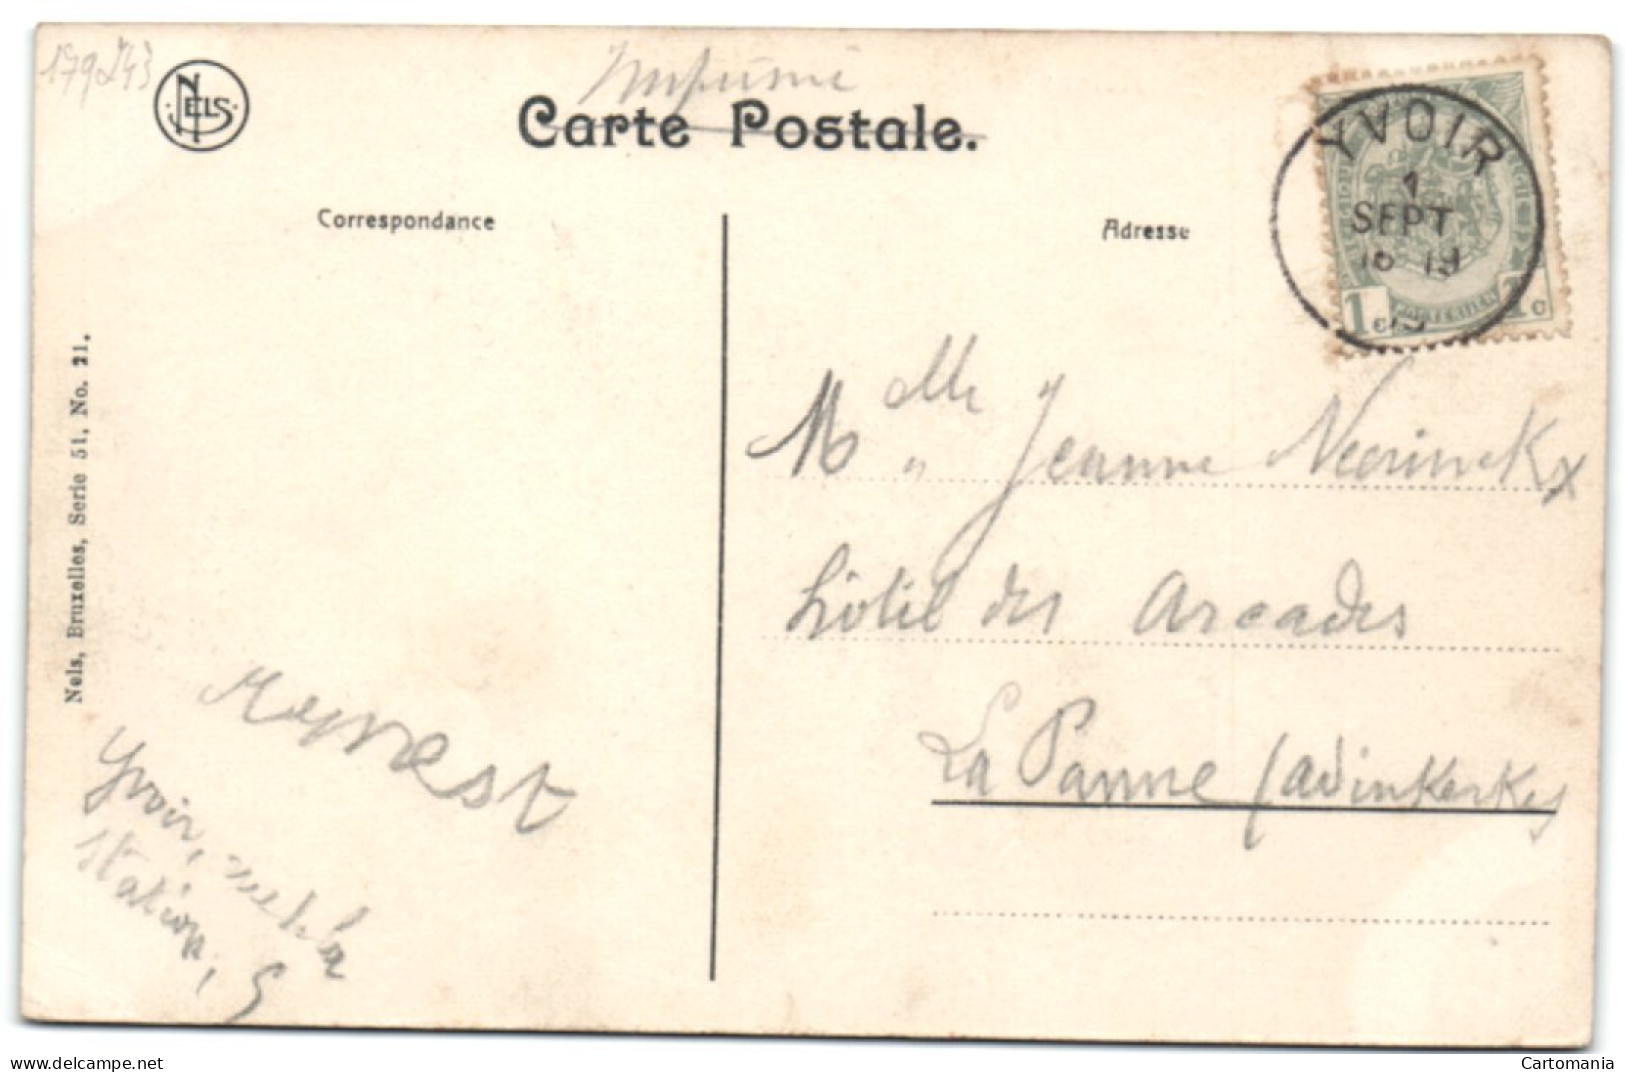 179243
NELS
Imprimé
Carte Postale.
Correspondance
Adresse
YVOIR
1
SEPT
18-19
1c
1c
Nels, Bruxelles, Serie 51, No. 21.
Mdelle Jeanne Neerinckx
hôtel des Arcades
La Panne (Adinkerke)
Yvoir, rue de la
Station, 5